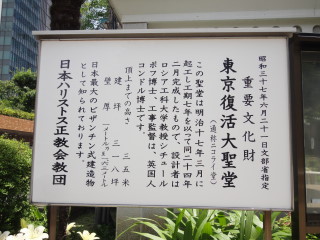 昭和三十七年六月二十一日文部省指定
重要文化財
東京復活大聖堂
（通称ニコライ堂）
この聖堂は明治十七年三月に
起工し工期七年を以て同二十四年
二月完成したもので、設計者は
ロシア工科大学教授シチュール
ポフ博士、工事監督は、英国人
コンドル博士です。
頂上までの高さ 三五米
建坪 三一八坪
壁厚
日本最大のビザンチン式建造物
として知られております。
日本ハリストス正教会教団